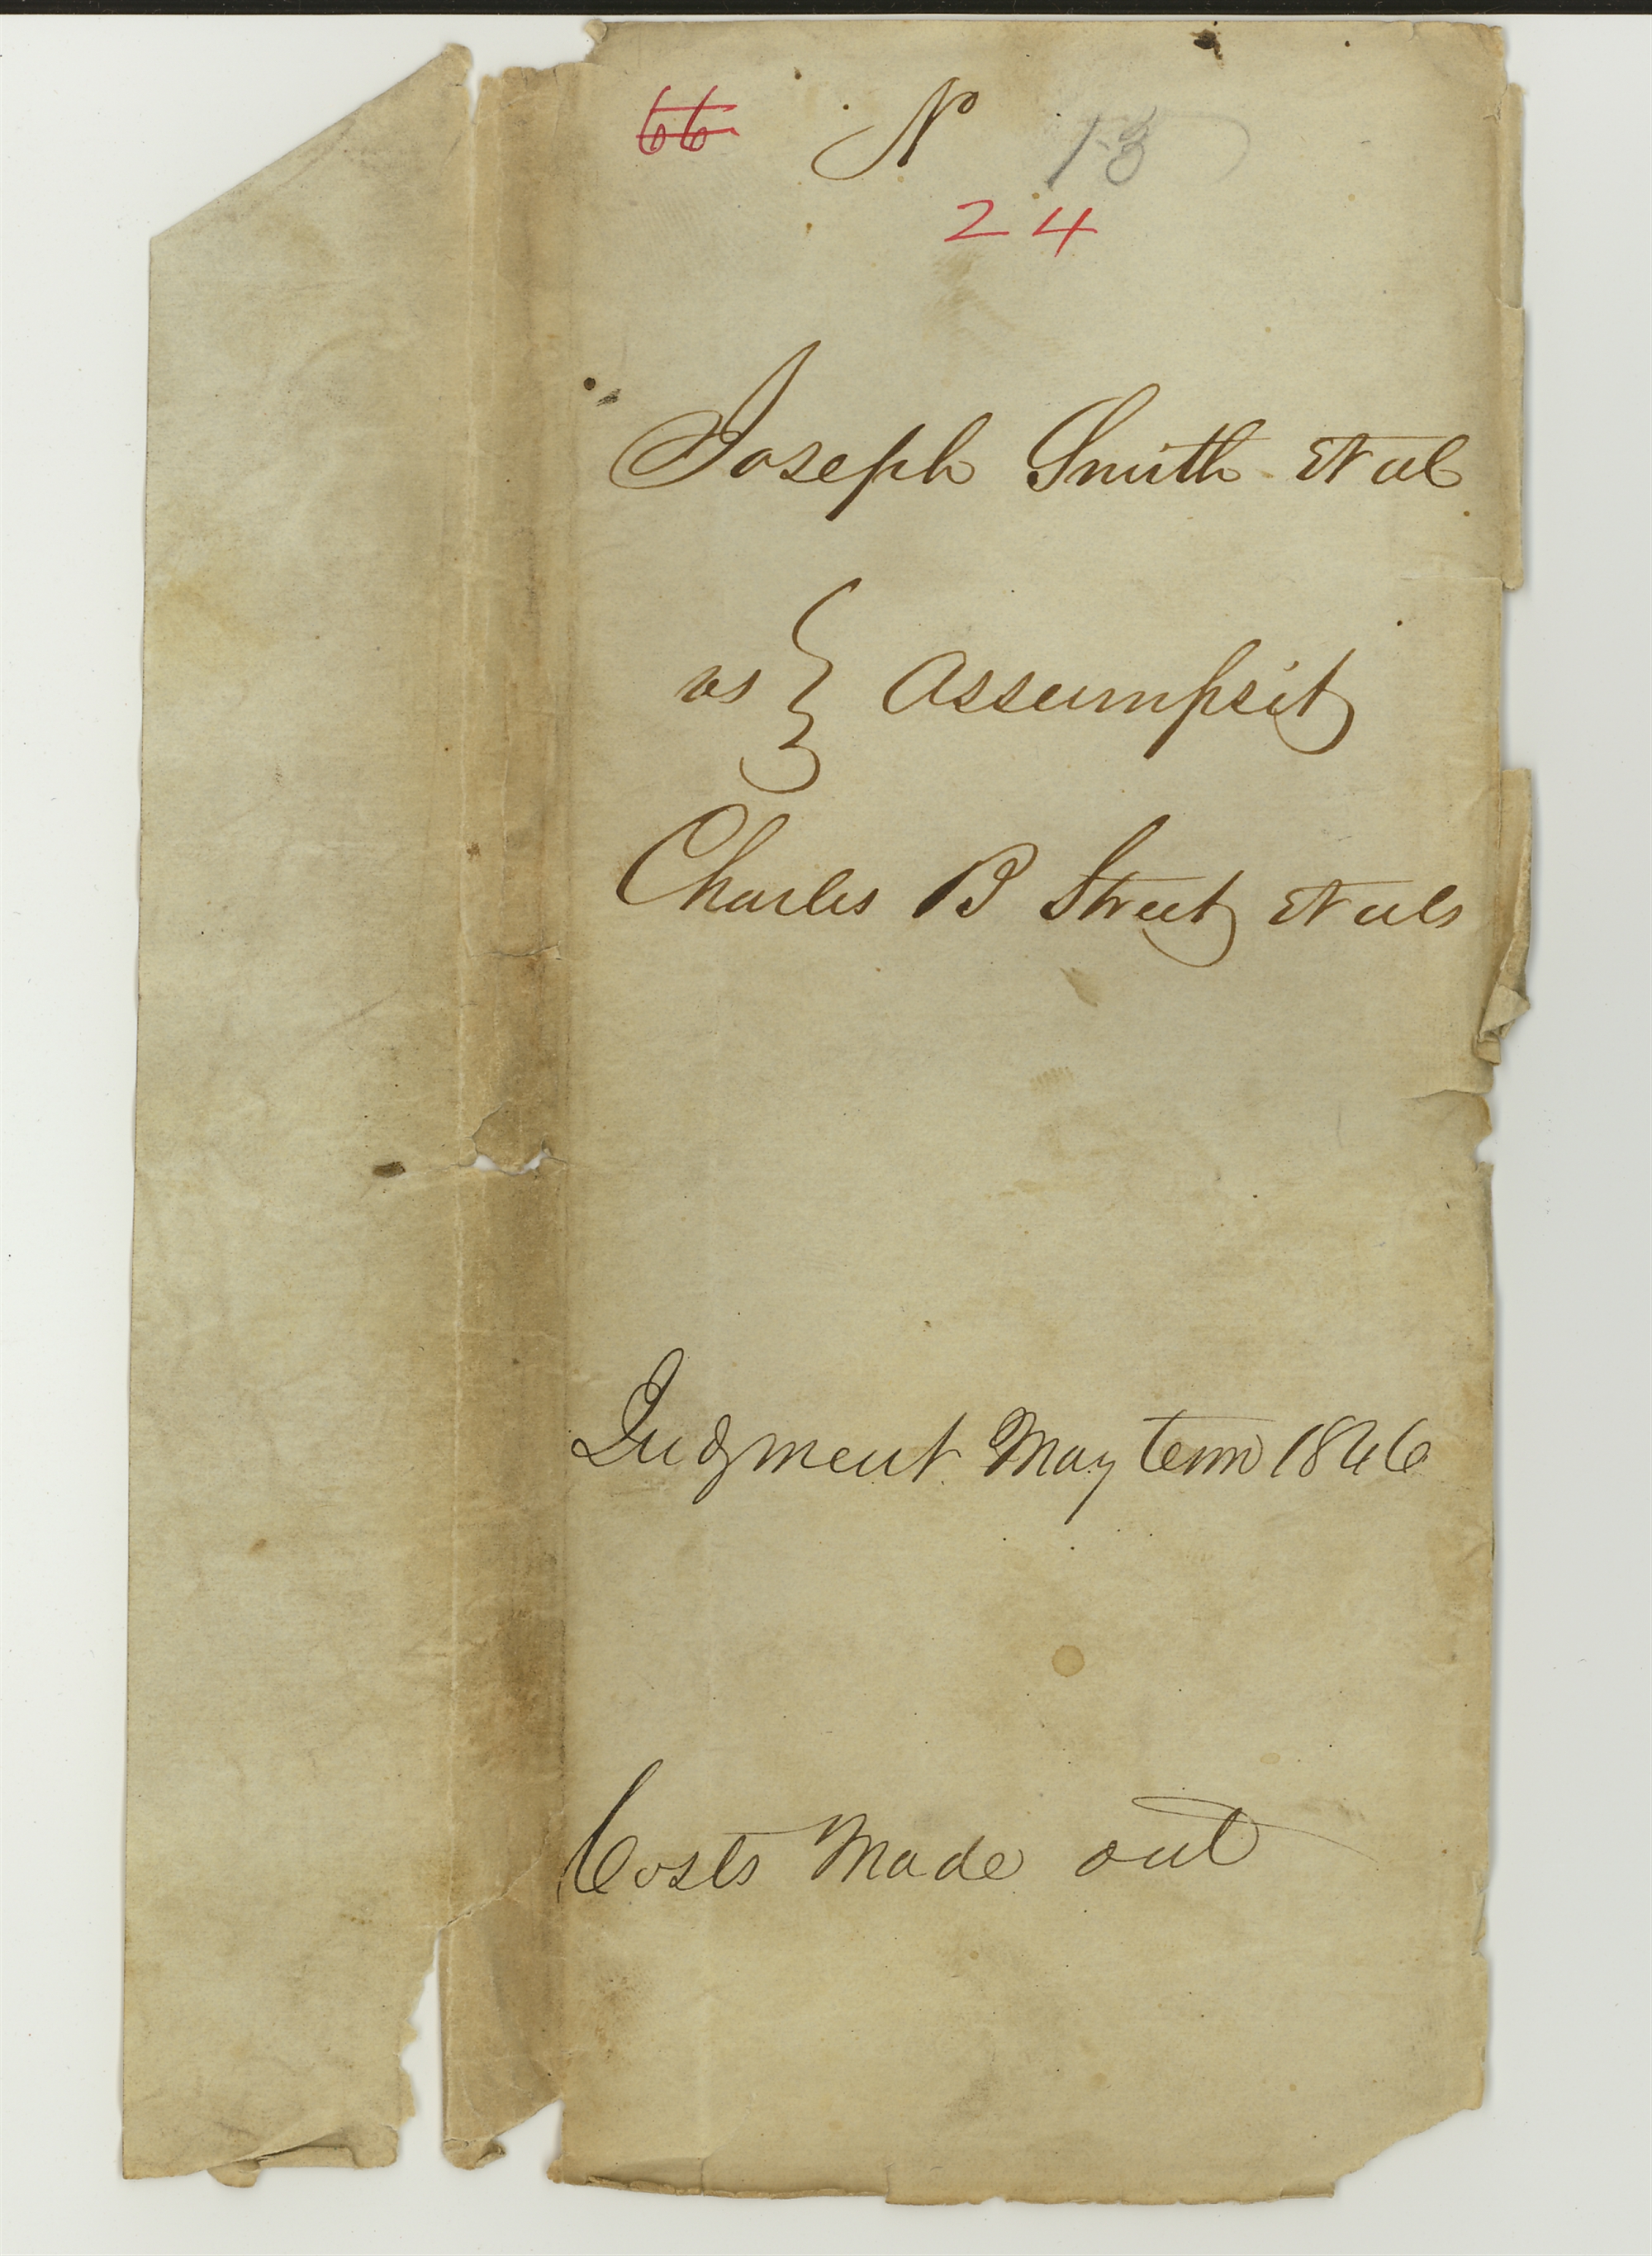 66 No 13
24
Joseph Smith et al
vs } Assumpsit
Charles B Street et als
Judgment May term 1846
Costs Made out